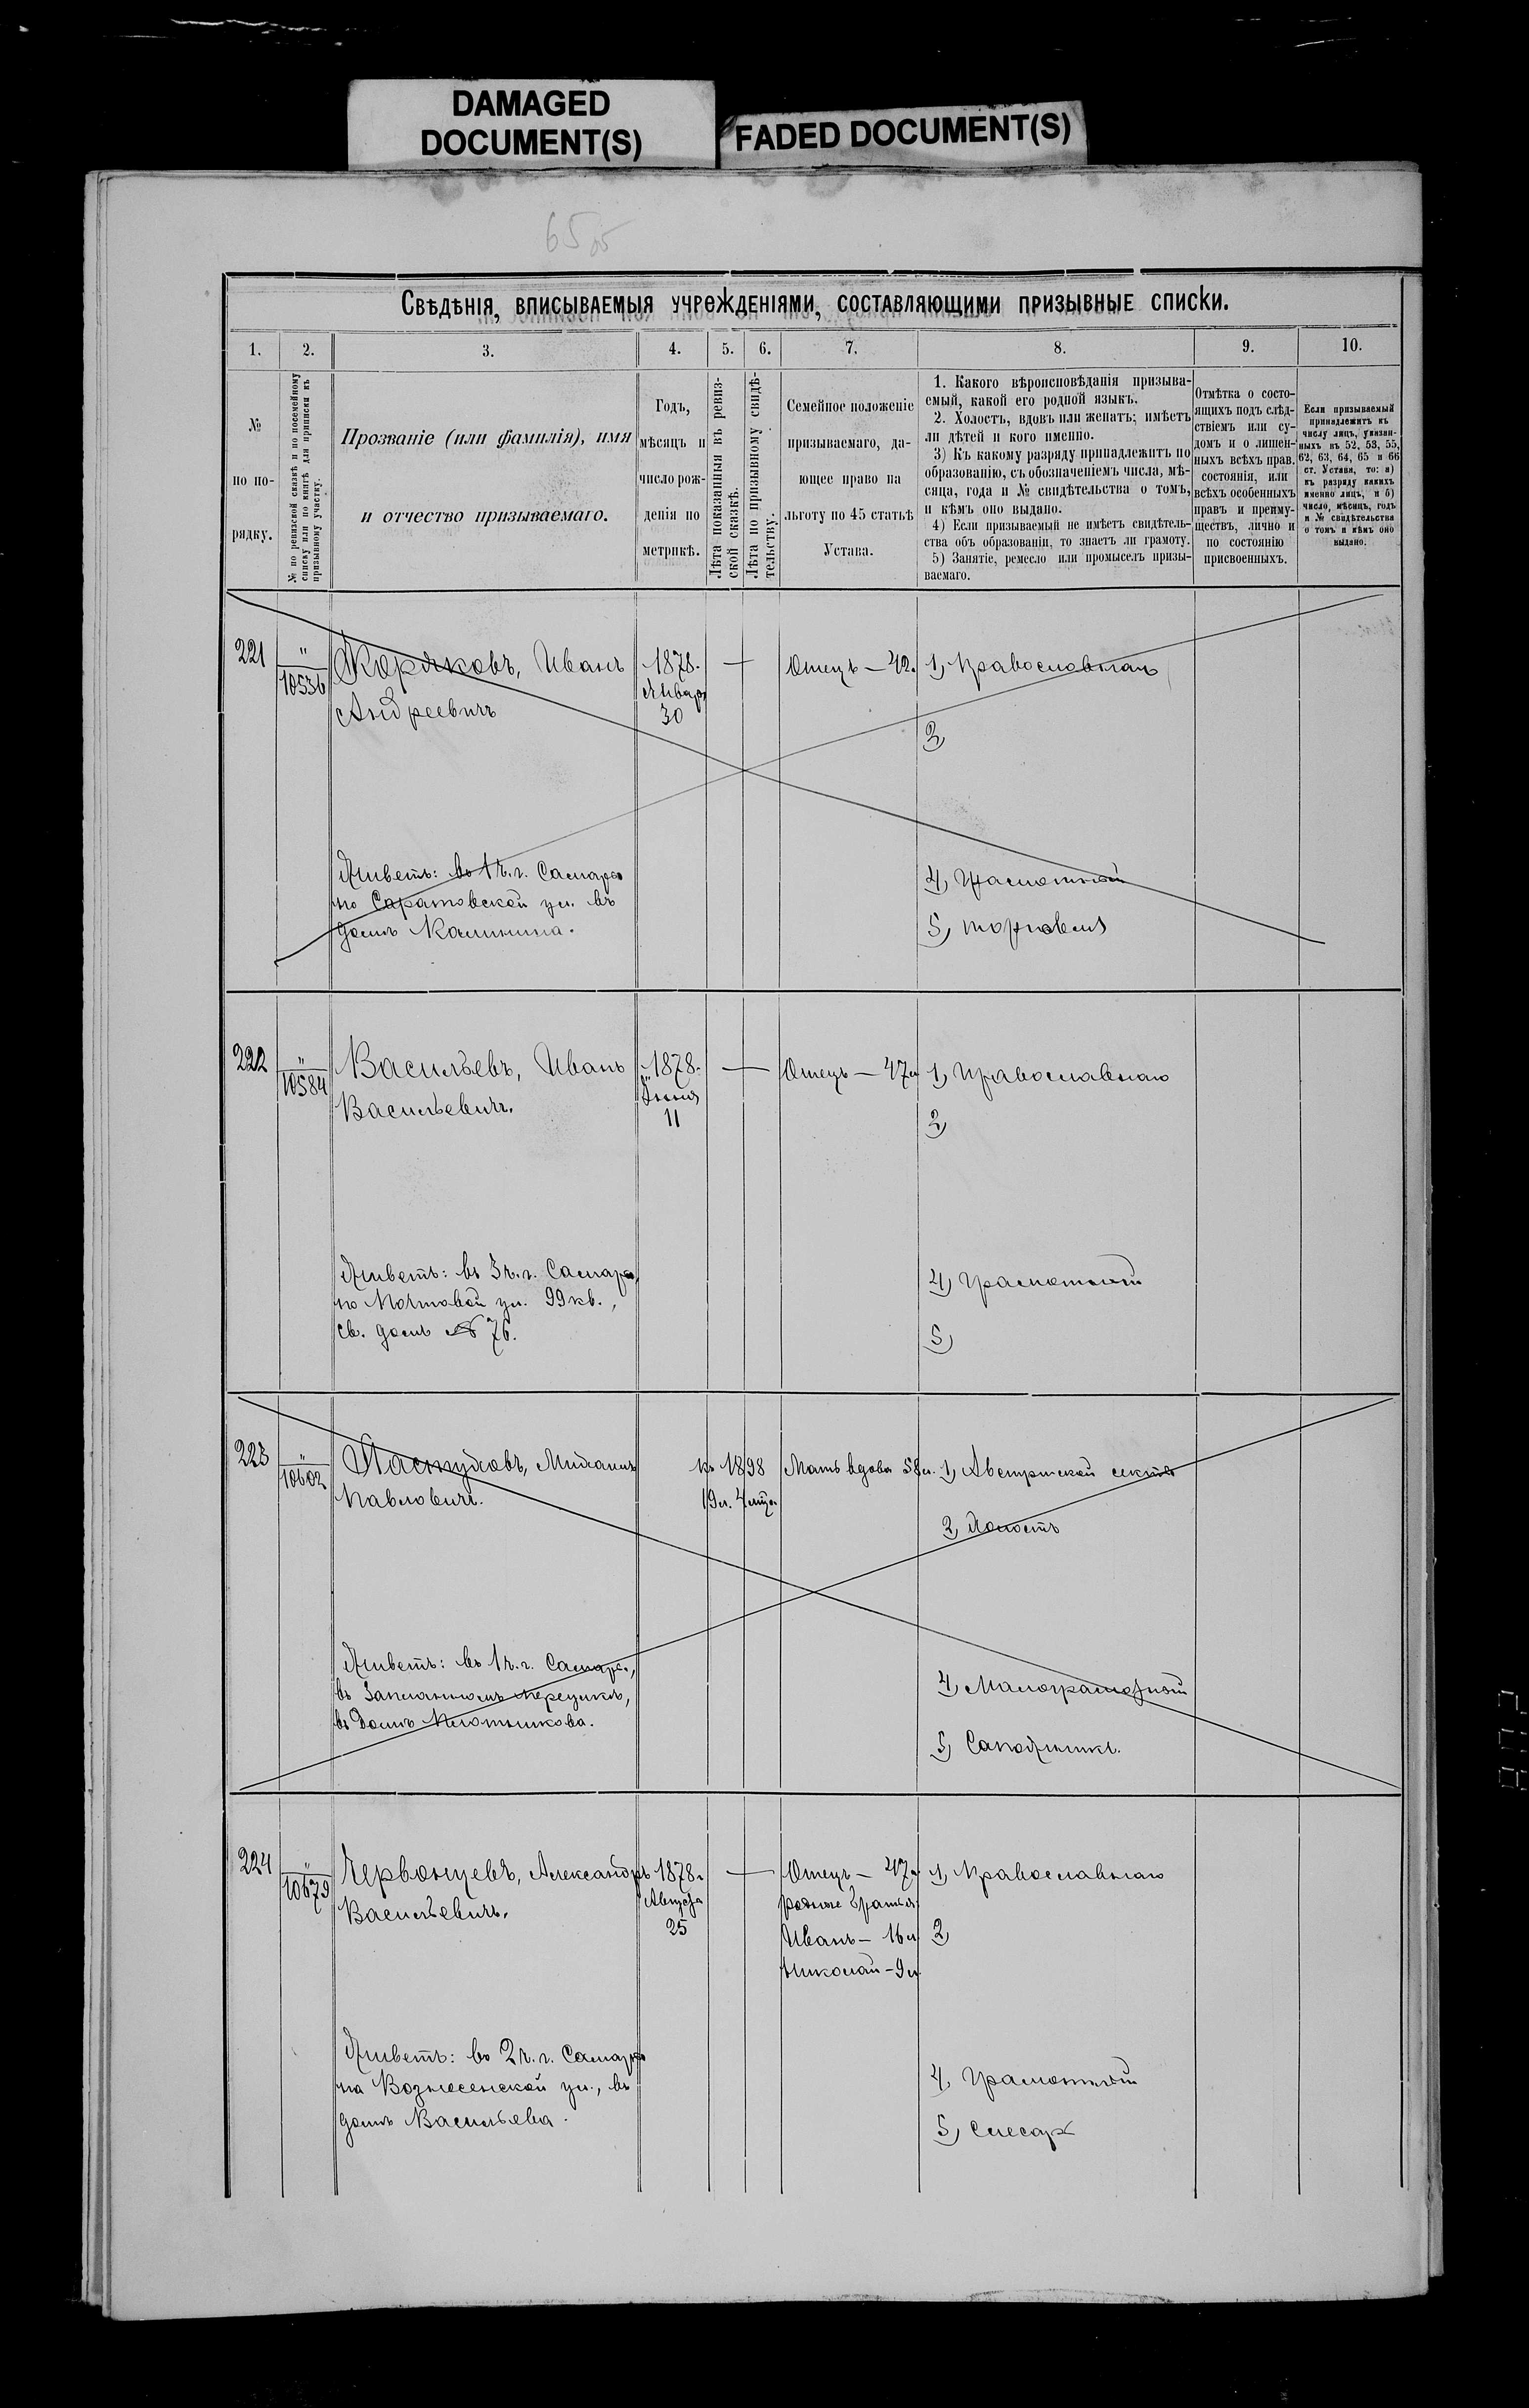 DAMAGED
DOCUMENT(S)
FADED DOCUMENT(S)
65
Свѣдѣнія, вписываемыя учрежденіями, составляющими призывные списки.
1. 2. 3. 4. 5. 6. 7. 8. 9. 10.
№
по по-
рядку.
№ по ревизской сказкѣ и по посемейному
списку или по книгѣ для приписки къ
призывному участку.
Прозваніе (или фамилія), имя
и отчество призываемаго.
Годъ,
мѣсяцъ и
число рож-
денія по
метрикѣ.
Лѣта показанныя въ ревиз-
ской сказкѣ.
Лѣта по призывному свидѣ-
тельству.
Семейное положеніе
призываемаго, да-
ющее право на
льготу по 45 статьѣ
Устава.
1. Какого вѣроисповѣданія призыва-
емый, какой его родной языкъ.
2. Холостъ, вдовъ или женатъ; имѣетъ
ли дѣтей и кого именно.
3) Къ какому разряду принадлежитъ по
образованію, съ обозначеніемъ числа, мѣ-
сяца, года и № свидѣтельства о томъ,
и кѣмъ оно выдано.
4) Если призываемый не имѣетъ свидѣтель-
ства объ образованіи, то знаетъ ли грамоту.
5) Занятіе, ремесло или промыселъ призы-
ваемаго.
Отмѣтка о состо-
ящихъ подъ слѣд-
ствіемъ или су-
домъ и о лишен-
ныхъ всѣхъ прав.
состоянія, или
всѣхъ особенныхъ
правъ и преиму-
ществъ, лично и
по состоянію
присвоенныхъ.
Если призываемый
принадлежитъ къ
числу лицъ, указан-
ныхъ въ 52, 53, 55,
62, 63, 64, 65 и 66
ст. Устава, то: а)
къ разряду какихъ
именно лицъ, и б)
число, мѣсяцъ, годъ
и № свидѣтельства
о томъ и кѣмъ оно
выдано.
221 " 10536 Коряковъ, Иванъ 1878. — Отецъ — 42. 1, Православнаго
Андреевичъ Январ 30
2,
Живетъ: во 1 ч. г. Самары
по Саратовской ул. въ
домѣ Калинина.
4, Грамотный
5, торговля
222 " 10584 Васильевъ, Иванъ 1878. — Отецъ — 47 л 1, Православнаго
Васильевичъ. Іюня 11
2,
Живетъ: въ 3 ч. г. Самары,
по Почтовой ул. 99 кв.,
св. домъ № 76.
4, Грамотный
5)
223 " 10602 Пастуховъ, Михаилъ къ 1898 Мать вдова 58 л. 1, Австрійской секты
Павловичъ. 19 л. 4 мѣс.
2, Холостъ
Живетъ: въ 1 ч. г. Самары,
въ переулкѣ,
въ домѣ Плотникова.
4, Малограмотный
5, Сапожникъ.
224 " 10679 Червонцевъ, Александръ 1878. — Отецъ — 47 л 1, Православнаго
Васильевичъ. Августа родные братья:
25 Иванъ — 16 л 2,
Николай — 9 л
Живетъ: во 2 ч. г. Самары
на Вознесенской ул., въ
домѣ Васильева.
4, Грамотный
5, Слесарь